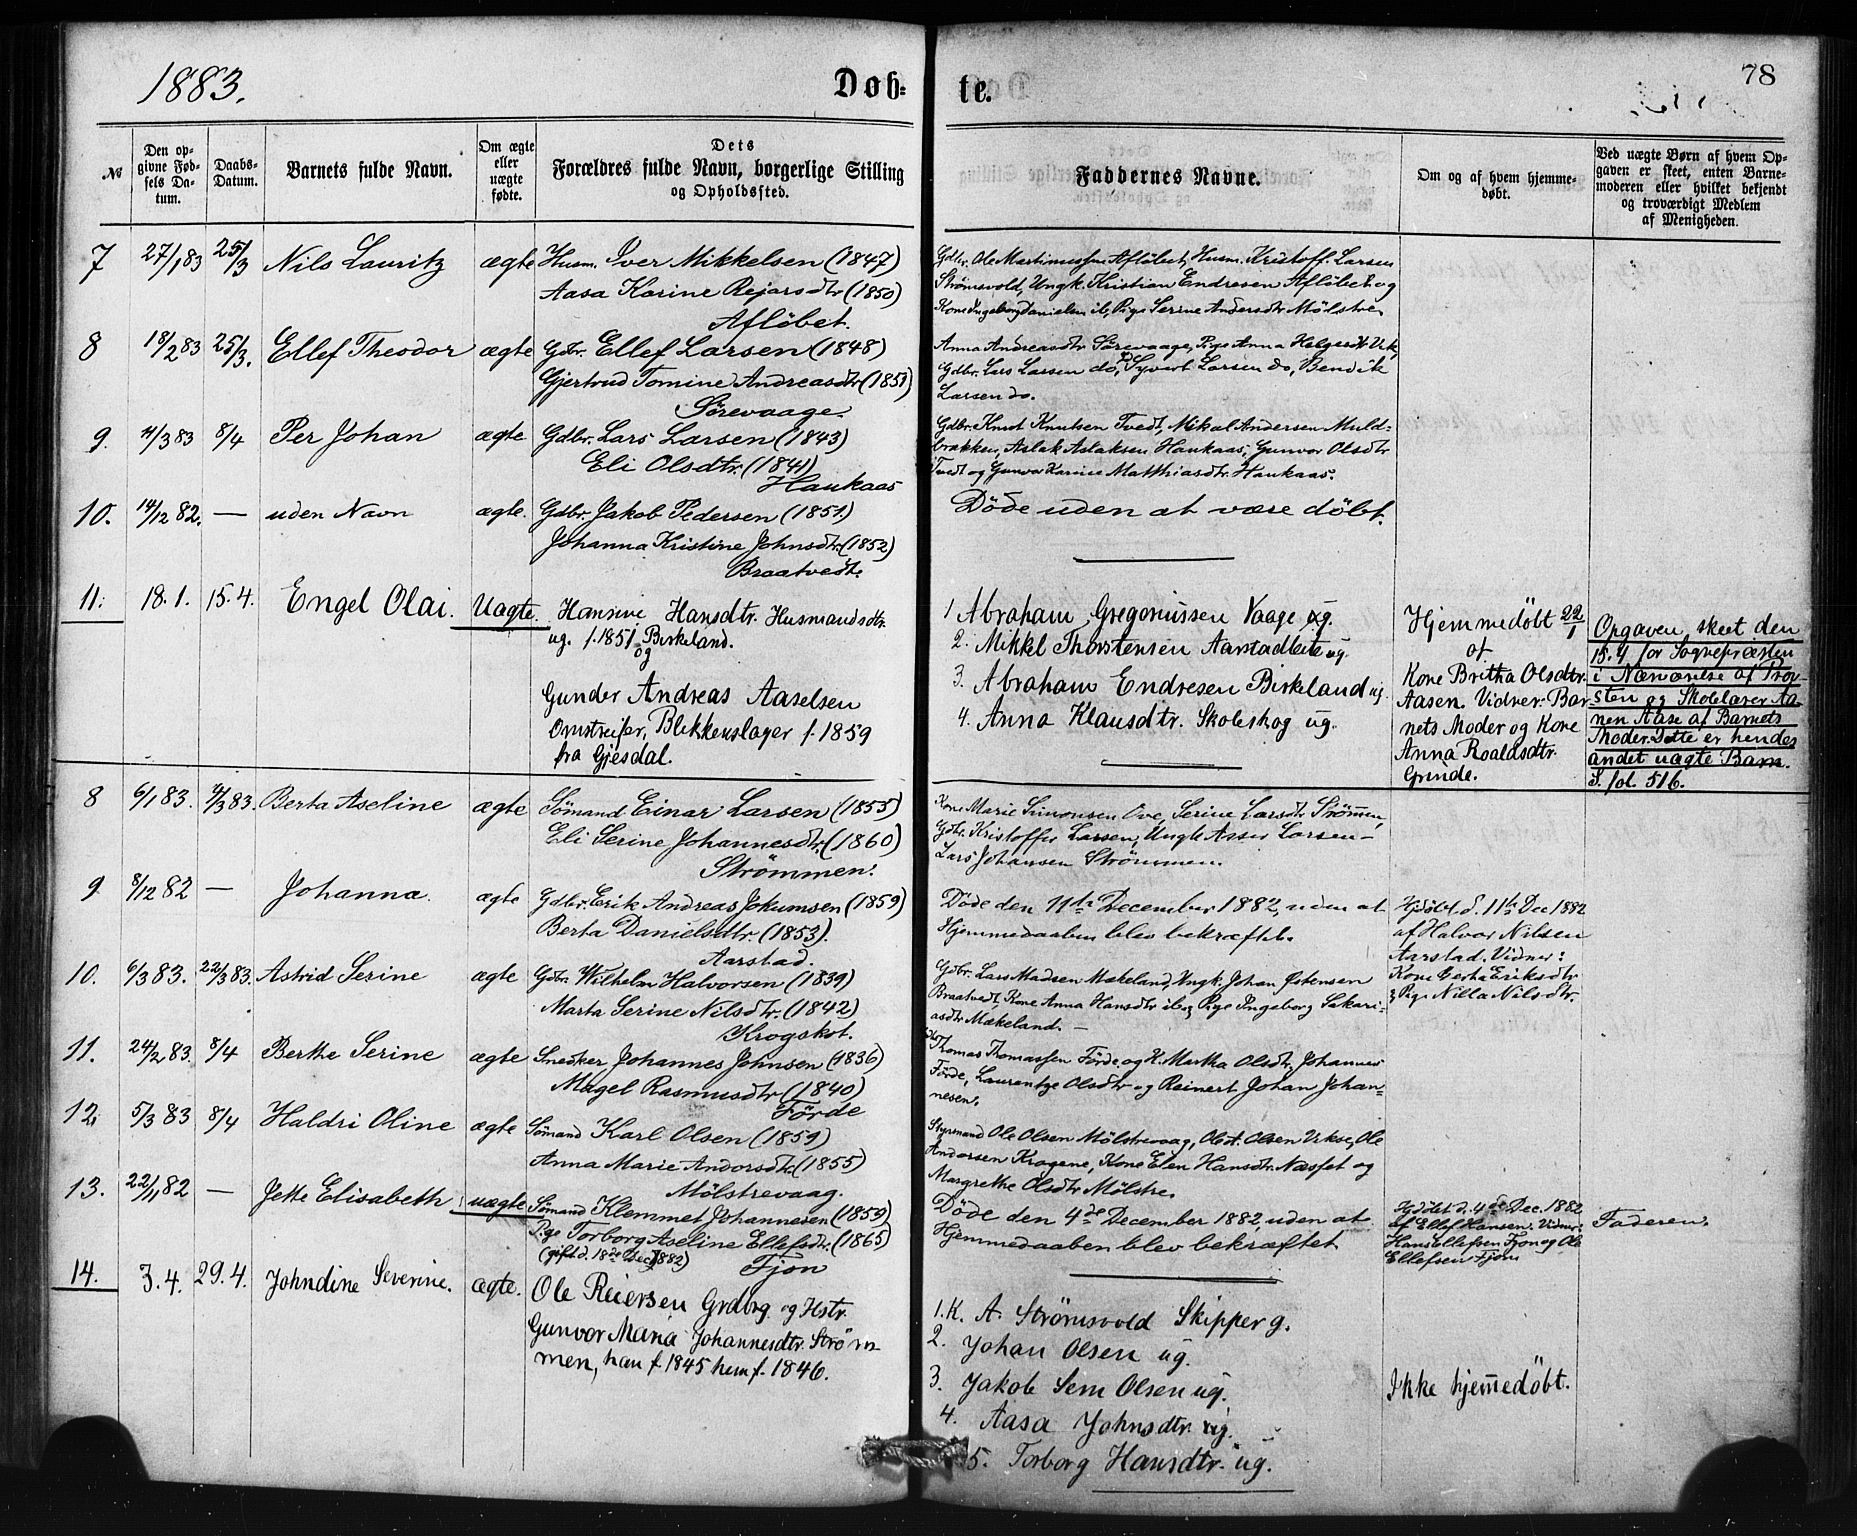 1883.
Døb-
te.
78
№
Den op-
givne Fød-
sels Da-
tum.
Daabs-
Datum.
Barnets fulde Navn.
Om ægte
eller
uægte
fødte.
Dets
Forældres fulde Navn, borgerlige Stilling
og Opholdssted.
Faddernes Navne.
Om og af hvem hjemme-
døbt.
Ved uægte Børn af hvem Op-
gaven er skeet, enten Barne-
moderen eller hvilket bekjendt
og troværdigt Medlem
af Menigheden.
7 27/1 83 25/3 Nils Lauritz ægte Husm. Iver Mikkelsen (1847)
Aasa Karine Rejarsdtr (1850)
Afløbet.
Gdbr. Ole Martinussen Afløbet, Husm. Kristoff. Larsen
Strømsvold, Ungk. Kristian Endresen Afløbet og
Kone Ingeborg Danielsen ib, Pige Serine Andersdtr Mølstre.
8 18/2 83 25/3. Ellef Theodor ægte Gdbr. Ellef Larsen (1848)
Gjertrud Tomine Andreasdtr (1851)
Sørevaage.
Anna Andreasdtr Sørevaage, Pige Anna Helgesdtr Urk,
Gdbr. Lars Larsen do, Syvert Larsen do, Bendik
Larsen do.
9. 11/3 83 8/4 Per Johan ægte Gdbr. Lars Larsen (1843)
Eli Olsdtr. (1841)
Haukaas
Gdbr. Knut Knutsen Tvedt, Mikal Andersen Muld-
brækken, Aslak Aslaksen Haukaas, Gunvor Olsdtr
Tvedt og Gunvor Karine Matthiasdtr. Haukaas.
10. 14/12 82. — uden Navn ægte. Gdbr. Jakob Pedersen (1851.)
Johanna Kristine Johnsdtr. (1852)
Braatvedt.
Døde uden at være døbt.
11. 18.1. 15.4. Engel Olai. Uægte. Hansine Hansdtr. Husmandsdtr.
ug. f. 1851 Birkeland.
og
Gunder Andreas Aaselsen
Omstreifer, Blikkenslager f. 1859
fra Gjesdal.
1 Abraham Gregoriussen Vaage ug.
2. Mikkel Thorstensen Aarstadleite ug.
3. Abraham Endresen Birkeland ug.
4. Anna Klausdtr. Skoleskog ug.
Hjemmedøbt 22/1
af
Kone Britha Olsdtr.
Aasen. Vidner: Bar-
nets Moder og Kone
Anna Roaldsdtr.
Grinde.
Opgaven skeet den
15.4 for Sognepræsten
i Nærværelse af Prov-
sten og Skolelærer Aa-
nen Aase af Barnets
Moder. Dette er hendes
andet uægte Barn.
S. fol. 516.
8 6/1 83. 4/3 83. Berta Aseline ægte Sømand Einar Larsen (1855)
Eli Serine Johannesdtr. (1860)
Strømmen.
Kone Marie Simonsen Ove, Serine Larsdtr Strømmen,
Gdbr. Kristoffer Larsen, Ungk Asser Larsen—
Lars Johansen Strømmen.
9 8/12 82 — Johanna. ægte Gdbr. Erik Andreas Jokumsen (1859)
Berta Danielsdtr. (1853).
Aarstad.
Døde den 11te December 1882, uden at
Hjemmedaaben blev bekræftet.
Hjdøbt d. 11te Dec 1882
af Halvor Nilsen
Aarstad. Vidner:
Kone Berta Eriksdtr
& Pige Nilla Nilsdtr.
10. 6/3 83. 22/3 83. Astrid Serine ægte Gdbr. Wilhelm Halvorsen (1839)
Marta Serine Nilsdtr. (1842)
Krogskot.
Gdbr. Lars Madsen Mækeland, Ungk. Johan Østensen
Braatvedt, Kone Anna Hansdtr ib og Pige Ingeborg Sakari-
asdtr Mækeland. —
11. 24/2 83. 8/4 Berthe Serine ægte Snedker Johannes Johnsen (1836)
Magel Rasmusdtr (1840)
Førde
Thomas Thomassen Førde, og K. Martha Olsdtr, Johannes
Førde, Laurentze Olsdtr og Reinert Johan Johan-
nesen.
12. 5/3 83 8/4 Haldri Oline ægte Sømand Karl Olsen (1859)
Anna Marie Andersdtr. (1855)
Mølstrevaag.
Styrmand Ole Olsen Mølstrevaag, Olsen Urke, Ole
Andersen Kragene, Kone Elen Hansdtr. Næsset og
Margrethe Olsdtr Mølstre.
13. 22/11 82 — Jette Elisabeth uægte Sømand Klemmet Johannesen (1859)
Pige Torborg Aseline Ellefsdtr. (1865)
(gift d. 18de Dec 1882) Fjon
Døde den 4de December 1882, uden at
Hjemmedaaben blev bekræftet
Hjdøbt d. 4de Dec. 1882
af Ellef Hansen. Vidner:
Hans Ellefsen Fjon og Ole
Ellefsen Fjon
Faderen.
14. 3.4. 29.4. Johndine Severine. ægte. Ole Reiersen Grdbrg. og Hstr.
Gunvor Maria Johannesdtr. Strøm-
men, han f. 1845 hun f. 1846.
1. K. A. Strømsvold Skipper g.
2. Johan Olsen ug.
3. Jakob Sem Olsen ug.
4. Aasa Johnsdtr. ug.
5. Torborg Hansdtr. ug.
Ikke hjemmedøbt.